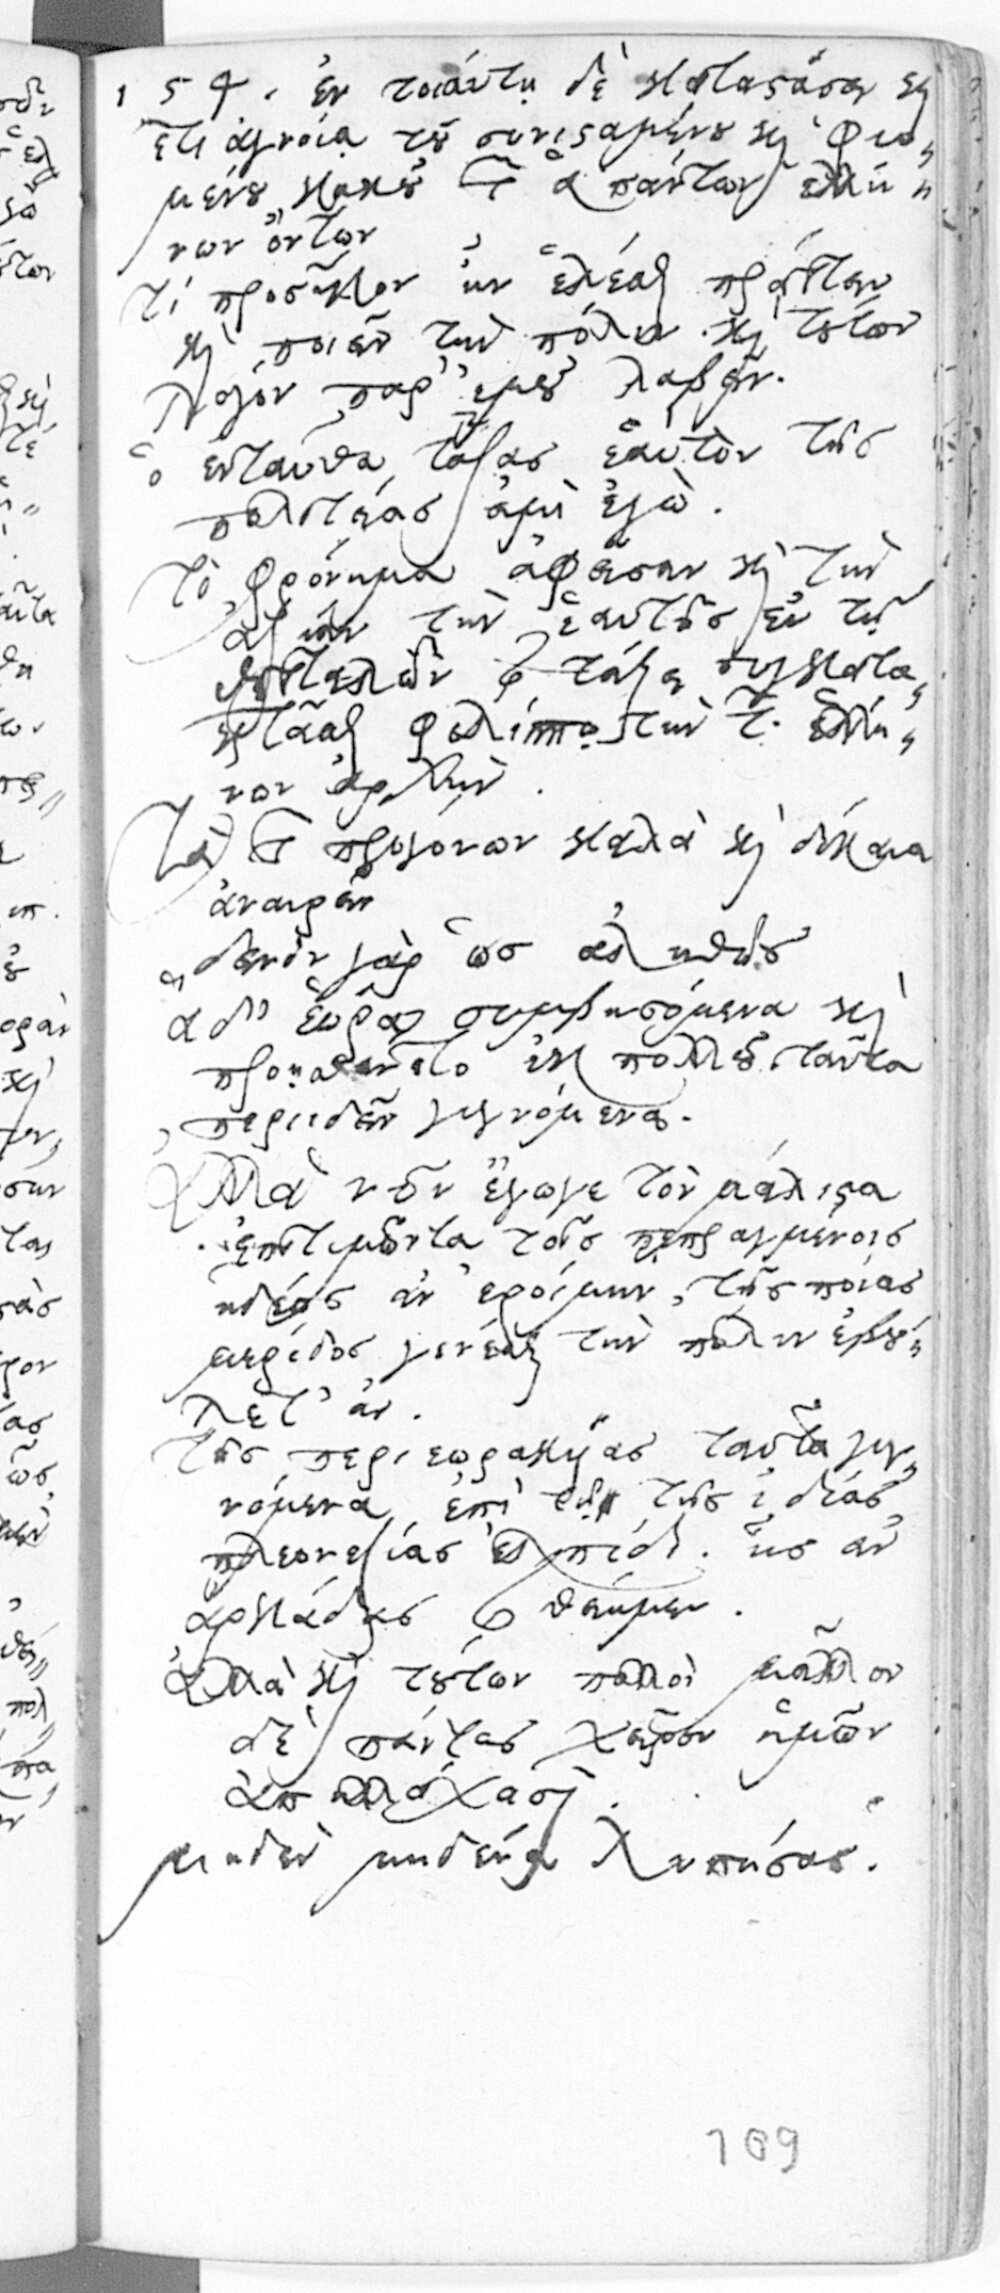 154. ἐν τοιάυτῃ δὲ καταστάσει καὶ
ἔτι ἀγνοίᾳ τοῦ συνισταμένου καὶ φυο,,
μένου κακοῦ τῶν ἁπάντων ἑλλή,,
νων ὄντων
τί προσῆκον ἦν ἑλέσθαι πράττειν
καὶ ποιεῖν τὴν πόλιν. καὶ τούτων
λόγον παρ' ἐμοῦ λαβεῖν.
ὁ ἐνταῦθα τάξας ἑαυτὸν τῆς
πολιτείας εἰμὶ ἐγὼ.
τὸ φρόνημα ἀφεῖσαν καὶ τὴν
ἀξίαν τὴν ἑαυτῆς ἐν τῇ
θετταλῶν τάξει συγκατα,,
κτᾶσθαι φιλίππῳ τὴν τῶν ἑλλή,,
νων ἀρχὴν.
τὰ τῶν προγόνων καλὰ καὶ δίκαια
ἀναιρεῖν
δεινὸν γὰρ ὡς ἀληθῶς
ἃ δ' ἑώρα συμβησόμενα καὶ
προῃσθάνετο ἐκ πολλοῦ. ταῦτα
περιιδεῖν γιγνόμενα.
Ἀλλὰ νῦν ἔγωγε τὸν μάλιστα
ἐπιτιμῶντα τοῖς πεπραγμένοις
ἡδέως ἂν ἐροίμην, τῆς ποίας
μερίδος γενέσθαι τὴν πόλιν ἐβού,,
λετ' ἂν.
τῆς περιεωρακυίας ταῦτα γιγ,,
νόμενα ἐπὶ τῇ τῆς ἰδίας
πλεονεξίας ἐλπίδι. ἧς ἂν
ἀρκάδας θείημεν.
ἀλλὰ καὶ τούτων πολλοὶ μᾶλλον
δὲ πάντες χεῖρον ἡμῶν
ἀπηλλάχασι.
μηδὲν μηδένα λυπήσας.
109